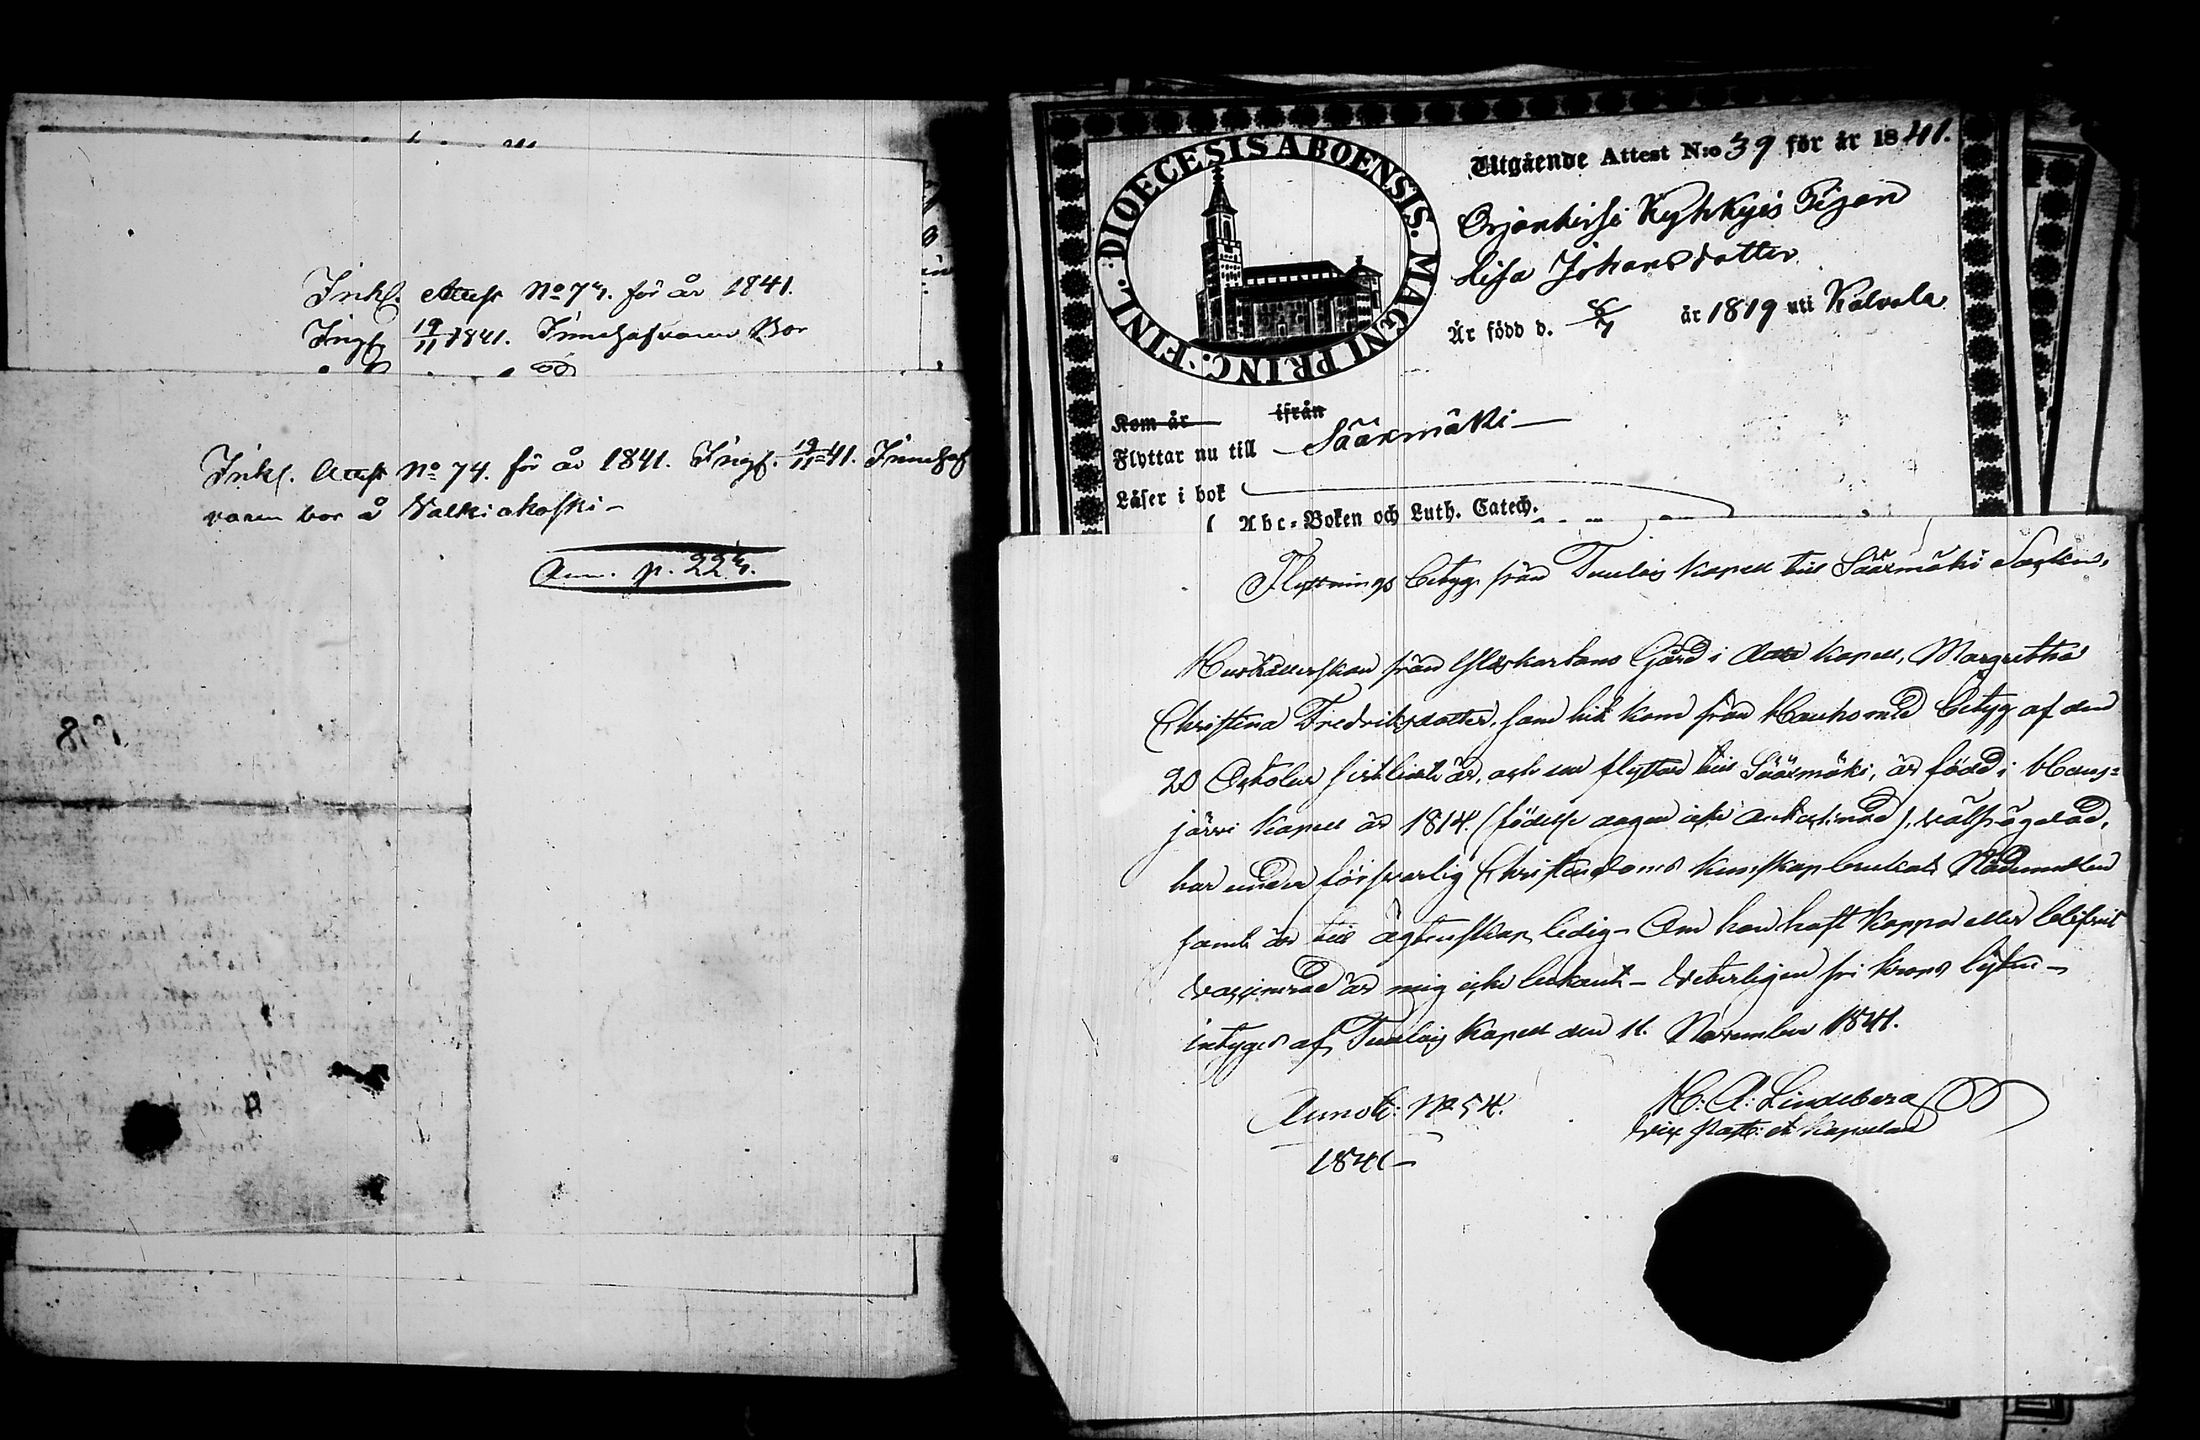 Inkl. Attest No 73. för år 1841.
Ingf 19/11 1841. Innehafvaren Bor
Inkl. Attest No 74. för år 1841. Ingf. 19/11 41. Innehaf
varen bor å Valkiakoski –
Ann. p. 223.
FINL: DIOECESIS ABOENSIS. MAGNI PRINC:
Utgående Attest N:o 39 för år 1841.
Orjanhirsi Kyhkyis Pigan
Lisa Johansdotter
Är född d. år 1819 uti Kalvola
Kom år ifrån
Flyttar nu till Sääxmäki –
Läser i bok
Abc-Boken och Luth. Catech.
Flyttnings betyg från Tuulois Kapell till Sääxmäki Socken.
Hushållerskan från Gård i detta Kapell, Margretha
Christina Fredriksdotter, som hit kom från Hauho med betyg af den
20 October sistledit år, och nu flyttar till Sääxmäki, är född i Haus=
järvi Kapell år 1814. (födelse dagen icke antecknad), välfrägdad,
har under försvarlig Christendoms kunskap brukat Nådemedlen
samt är till ägtenskap ledig – Om hon haft koppor eller blifvit
vaccinerad är mig icke bekant – Veterligen fri krono lyten –
intygas af Tuulois Kapell den 11. November 1841.
Annot: No 54.
1841 –
H: A: Lindeberg
Vice Past: et Kapellan